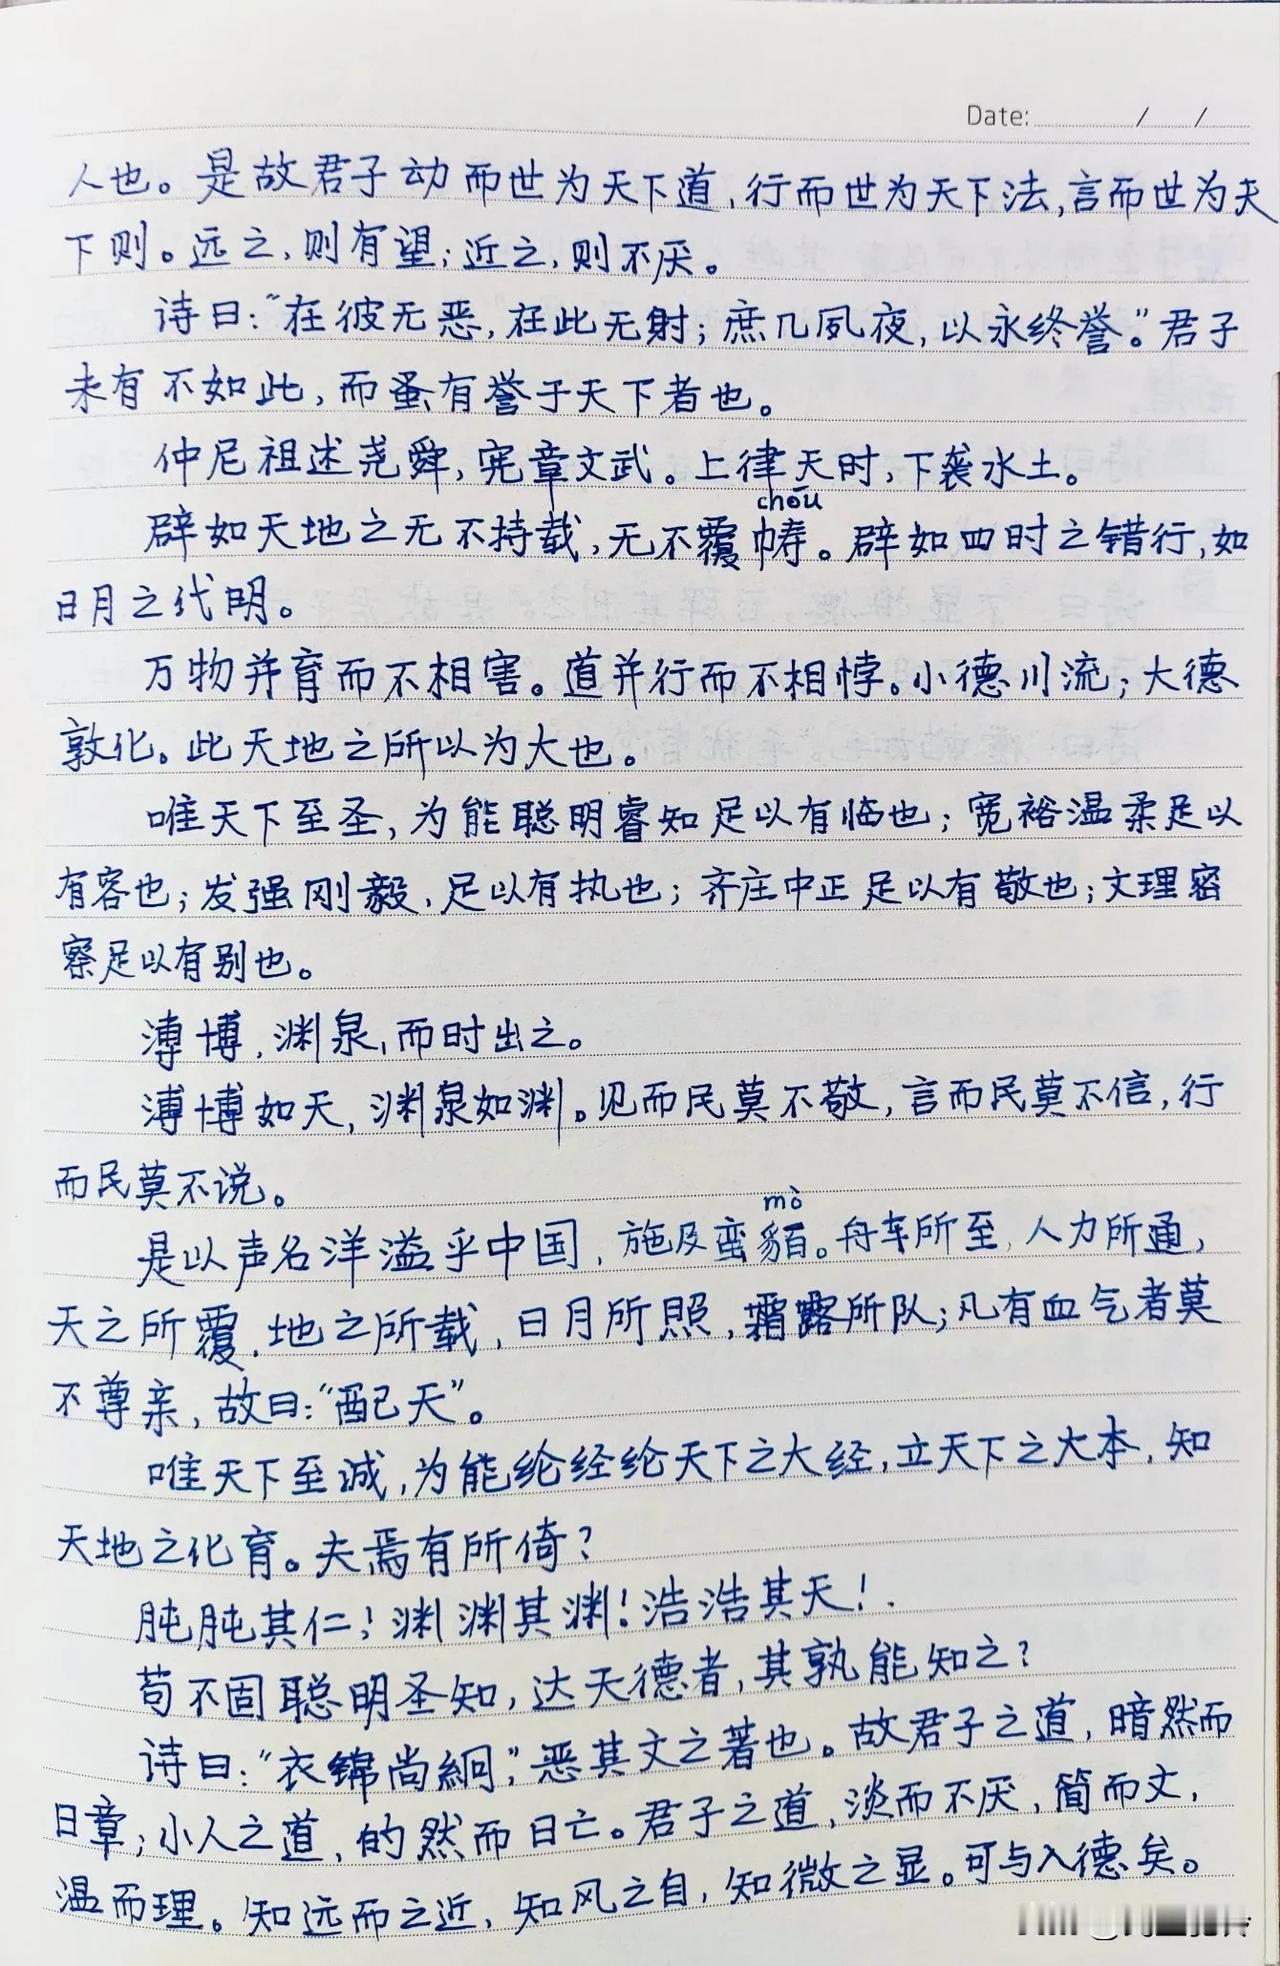 Date: / /
人也。是故君子动而世为天下道,行而世为天下法,言而世为天
下则。远之,则有望;近之,则不厌。
诗曰:“在彼无恶,在此无射;庶几夙夜,以永终誉。”君子
未有不如此,而蚤有誉于天下者也。
仲尼祖述尧舜,宪章文武。上律天时,下袭水土。
chóu
辟如天地之无不持载,无不覆帱。辟如四时之错行,如
日月之代明。
万物并育而不相害。道并行而不相悖。小德川流;大德
敦化。此天地之所以为大也。
唯天下至圣,为能聪明睿知足以有临也;宽裕温柔足以
有容也;发强刚毅,足以有执也;齐庄中正足以有敬也;文理密
察足以有别也。
溥博,渊泉,而时出之。
溥博如天,渊泉如渊。见而民莫不敬,言而民莫不信,行
而民莫不说。
mò
是以声名洋溢乎中国,施及蛮貊。舟车所至,人力所通,
天之所覆,地之所载,日月所照,霜露所队;凡有血气者莫
不尊亲,故曰:“配天”。
唯天下至诚,为能纶经纶天下之大经,立天下之大本,知
天地之化育。夫焉有所倚?
肫肫其仁!渊渊其渊!浩浩其天!.
苟不固聪明圣知,达天德者,其孰能知之?
诗曰:“衣锦尚絅”,恶其文之著也。故君子之道,暗然而
日章;小人之道,的然而日亡。君子之道,淡而不厌,简而文,
温而理。知远而之近,知风之自,知微之显。可与入德矣。